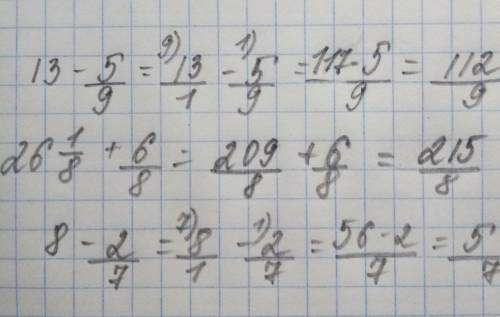 13 - 5/9 = 9) 13/1 - 1) 5/9 = 117-5/9 = 112/9
26 1/8 + 6/8 = 209/8 + 6/8 = 215/8
8 - 2/7 = 7) 8/1 - 1) 2/7 = 56-2/7 = 5/7